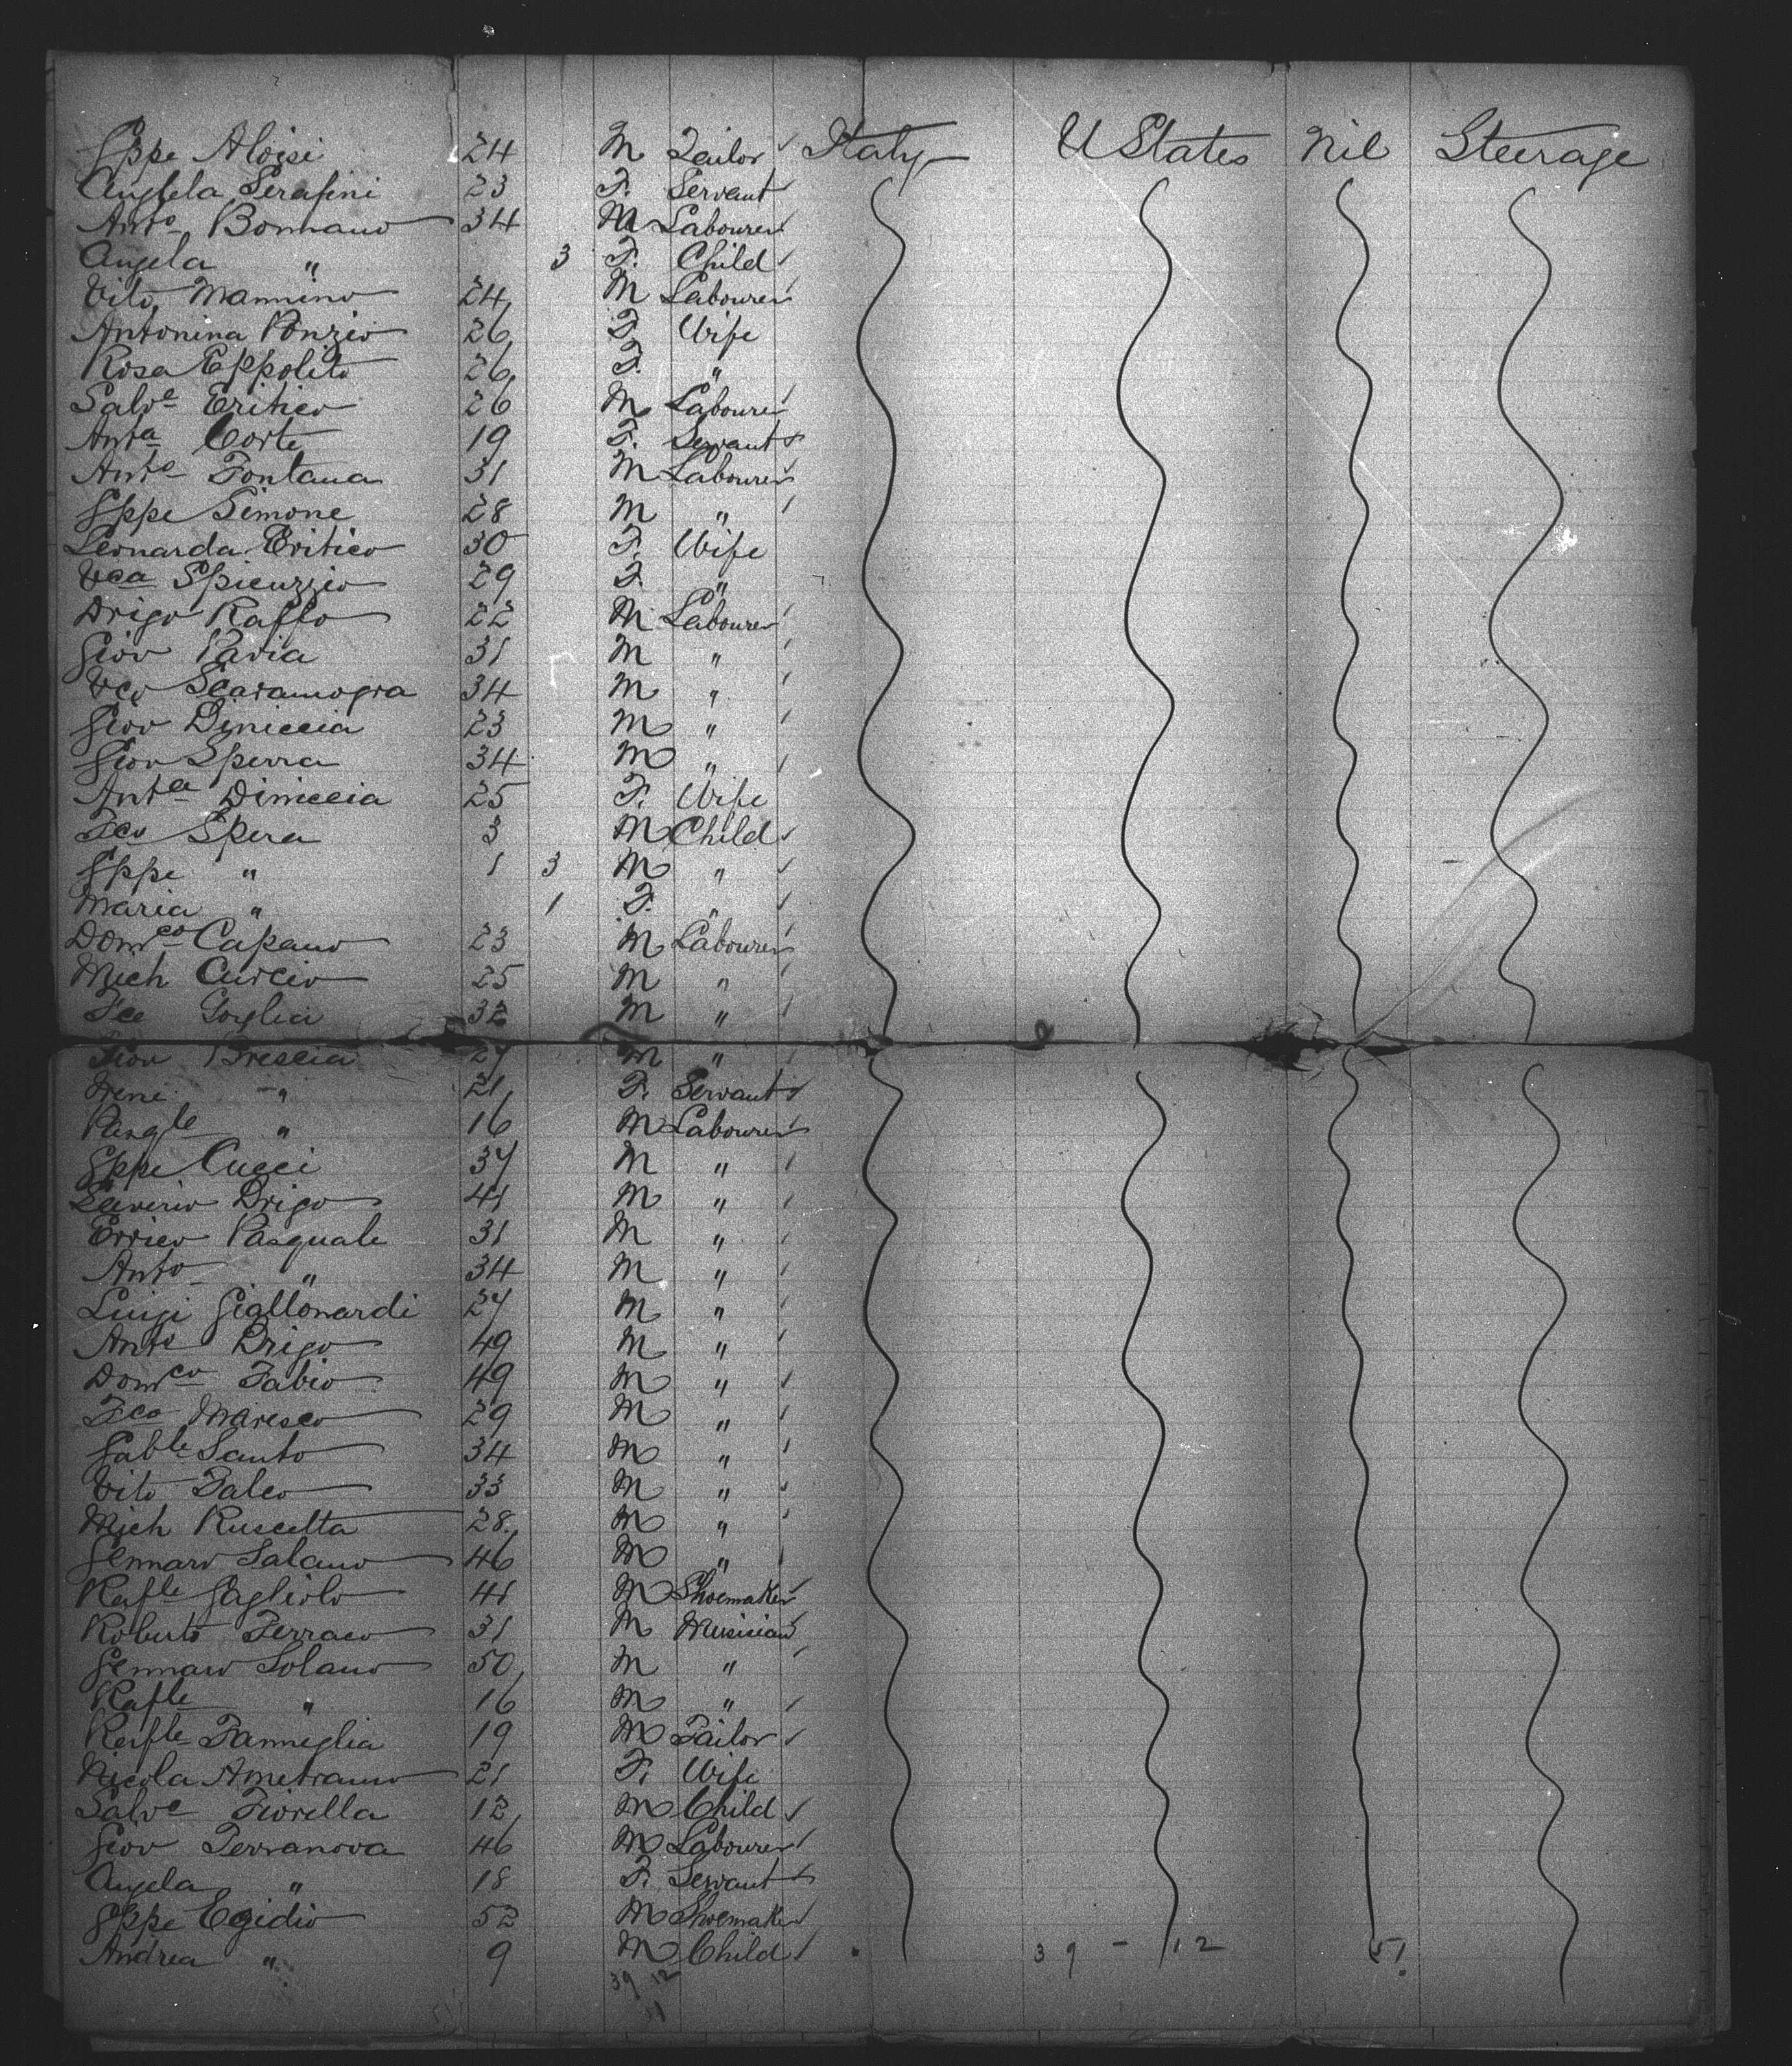 Gppe Aloisi 24 M Tailor Italy U States Nil Steerage
Angela Serafini 23 F. Servant
Anto Bonnano 34 M Labourer
Angela " 3 F. Child
Vito Mannino 24 M Labourer
Antonina Ponzio 26 F. Wife
Rosa Eppolito 26 F. "
Salve Eritico 26 M Labourer
Anta Corte 19 F. Servant
Anto Fontana 31 M Labourer
Gppe Simone 28 M "
Leonarda Eritico 30 F. Wife
Vca Spicuzzio 29 F. "
Drigo Raffo 22 M Labourer
Giov Pavia 31 M "
Vco Scaramogra 34 M "
Giov Diniccia 23 M "
Giov Sperra 34 M "
Anta Diniccia 25 F. Wife
Fco Spera 3 M Child
Gppe " 1 3 M "
Maria " 1 F. "
Domco Capano 23 M Labourer
Mich Curcio 25 M "
Fce Goglia 32 M "
Giov Brescia 27 M "
Irene " 21 F. Servant
Pasqle " 16 M Labourer
Gppe Cucci 37 M "
Saverio Drigo 41 M "
Errico Pasquale 31 M "
Anto " 34 M "
Luigi Giallonardi 27 M "
Anto Drigo 49 M "
Domco Fabio 49 M "
Fco Maresco 29 M "
Gable Santo 34 M "
Vito Falco 33 M "
Mich Ruscetta 28 M "
Gennaro Salano 46 M "
Rafle Gagliolo 41 M Shoemaker
Roberto Ferraro 31 M Musician
Gennaro Solano 50 M "
Rafle " 16 M "
Rafle Fanmiglia 19 M Tailor
Nicola Ametrano 21 F. Wife
Salve Fiorella 12 M Child
Giov Terranova 46 M Labourer
Angela " 18 F. Servant
Gppe Egidio 52 M Shoemaker
Andrea " 9 M Child 39 - 12 51
39 12